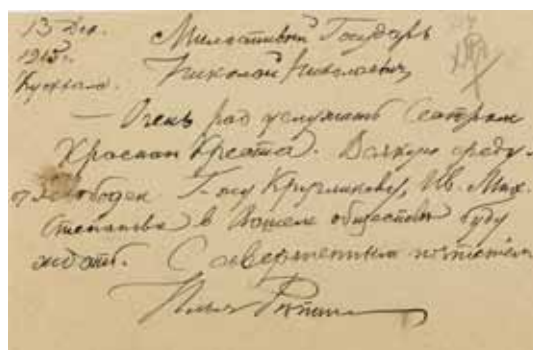 13 Дек.
1915 г.
Куоккала.
Милостивый Государь
Николай Николаевич,
— Очень рад услужить Сестрам
Красного Креста. Всякую среду
я свободен. Г-жу Кругликову, Ив. Мих.
Степанова в Вашем обществе буду
ждать. С совершенным почтением
Илья Репин